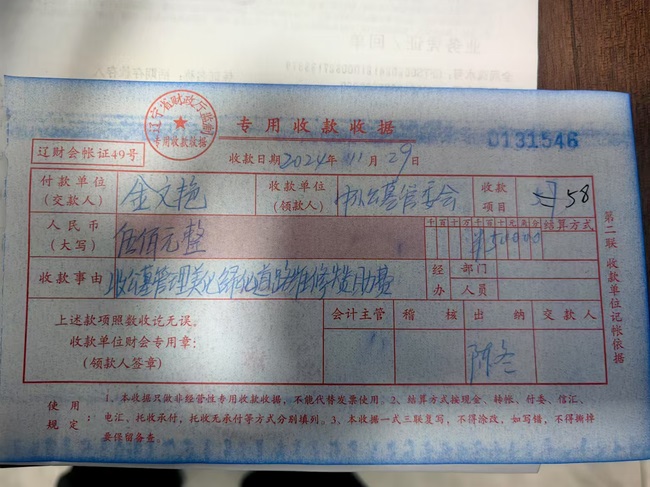 业务凭证/回单
辽宁省财政厅监制
专用收款收据
专用收款收据
0131546
辽财会帐证49号
收款日期2024年11月29日
付款单位
(交款人)
金文艳
收款单位
(领款人)
公墓管委会
收款
项目
58
人民币
(大写)
伍佰元整
千百十万千百十元角分
¥50000
结算方式
收款事由
收公墓管理美化绿化道路维修费
经办
部门
人员
上述款项照数收讫无误。
收款单位财会专用章:
(领款人签章)
会计主管
稽核
出纳
交款人
第二联 收款单位记帐依据
使用规定:
1、本收据只做非经营性专用收款收据,不能代替发票使用。2、结算方式按现金、转帐、付委、信汇、
电汇、托收承付,托收无承付等方式分别填列。3、本收据一式三联复写,不得涂改,如写错,不得撕掉
要保留备查。